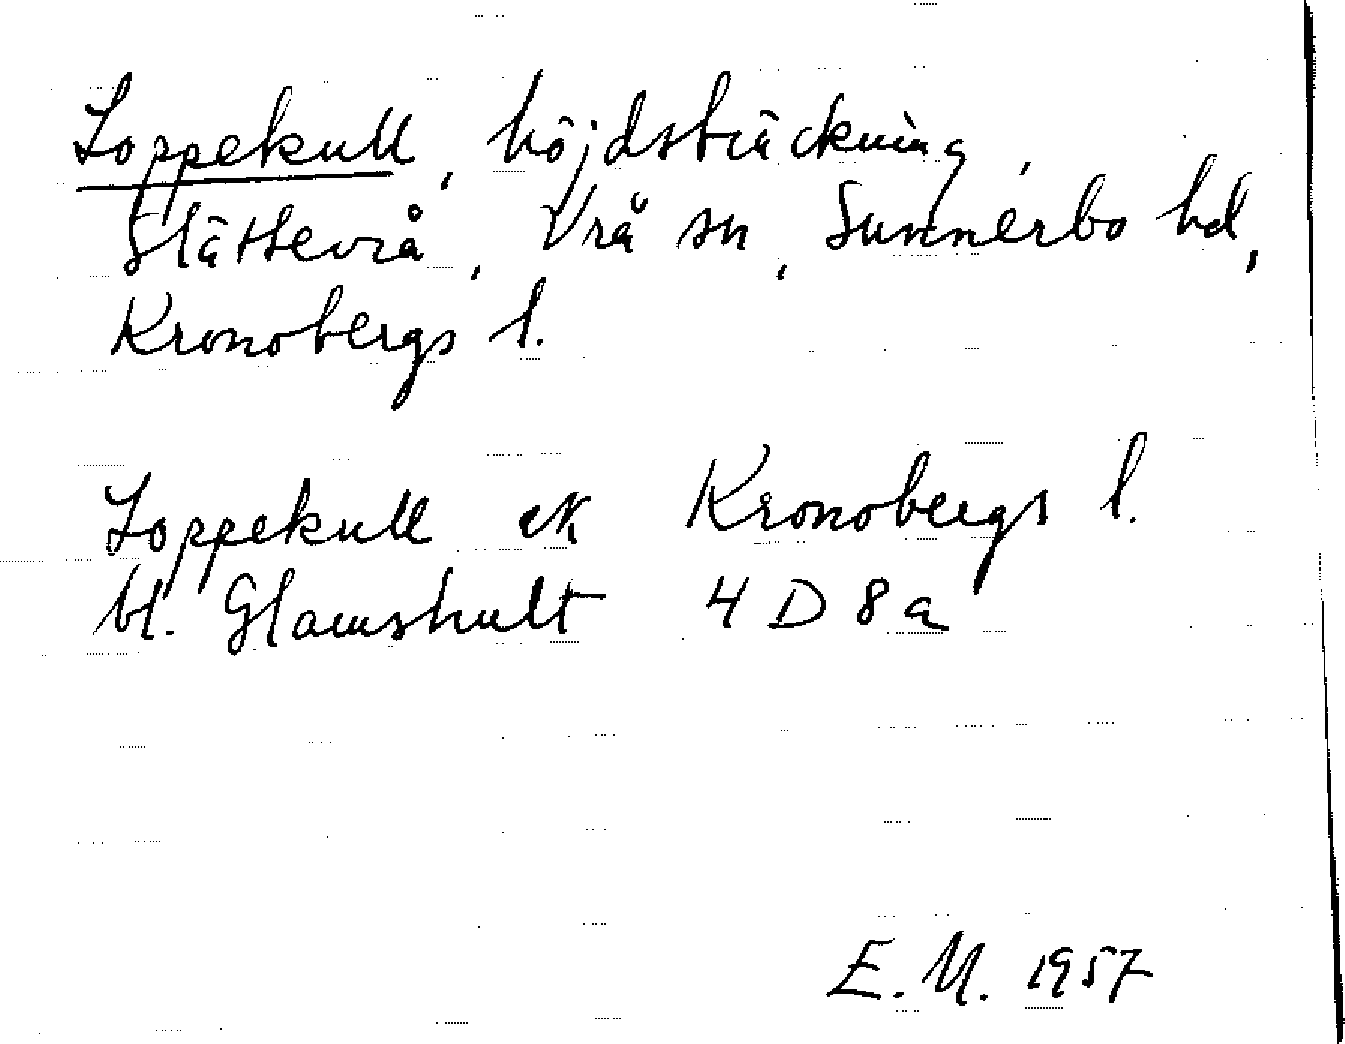 Loppekull, höjdsträckning,
Slättevrå, Vrå sn, Sunnerbo hd,
Kronobergs l.
Loppekull ek Kronobergs l.
bl. Glamshult 4 D 8 a
E. M. 1957